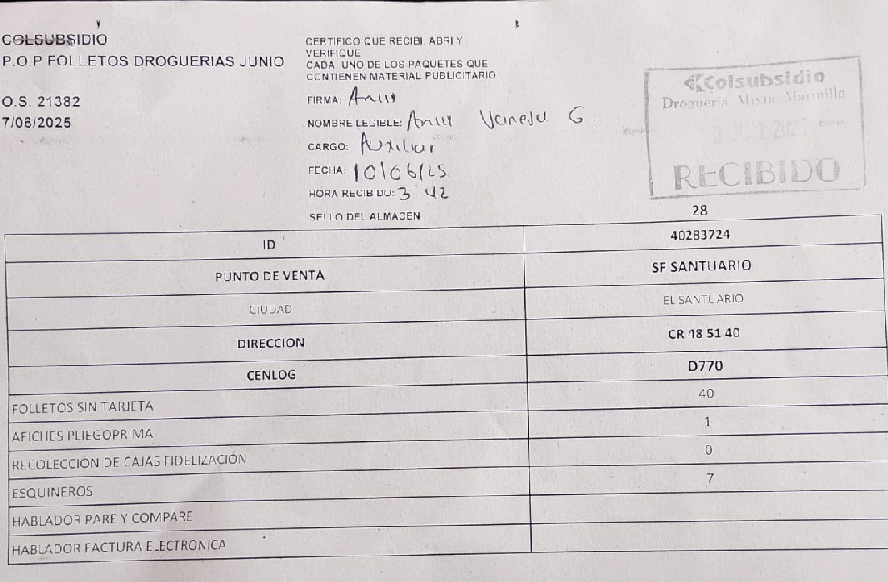 COLSUBSIDIO
P.O.P FOLLETOS DROGUERIAS JUNIO
O.S. 21382
7/06/2025
CERTIFICO QUE RECIBI, ABRI Y
VERIFIQUE
CADA UNO DE LOS PAQUETES QUE
CONTIENEN MATERIAL PUBLICITARIO
FIRMA:
NOMBRE LEGIBLE: G
CARGO: Auxiliar
FECHA: 10/06/25
HORA RECIBIDO: 3 42
SELLO DEL ALMACEN
Colsubsidio
Droguería Mixta Marinilla
RECIBIDO
28
ID 40283724
PUNTO DE VENTA SF SANTUARIO
CIUDAD EL SANTUARIO
DIRECCION CR 48 51 40
CENLOG D770
FOLLETOS SIN TARJETA 40
AFICHES PLIEGOPRIMA 1
RECOLECCIÓN DE CAJAS FIDELIZACIÓN 0
ESQUINEROS 7
HABLADOR PARE Y COMPARE
HABLADOR FACTURA ELECTRONICA